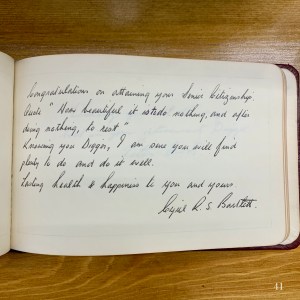 Congratulations on attaining your Senior Citizenship.
Quote, "How beautiful it is to do nothing, and after
doing nothing, to rest"
Knowing you Digger, I am sure you will find
plenty to do and do it well.
Lasting health & happiness to you and yours
Cyril R. S. Bartlett.
41